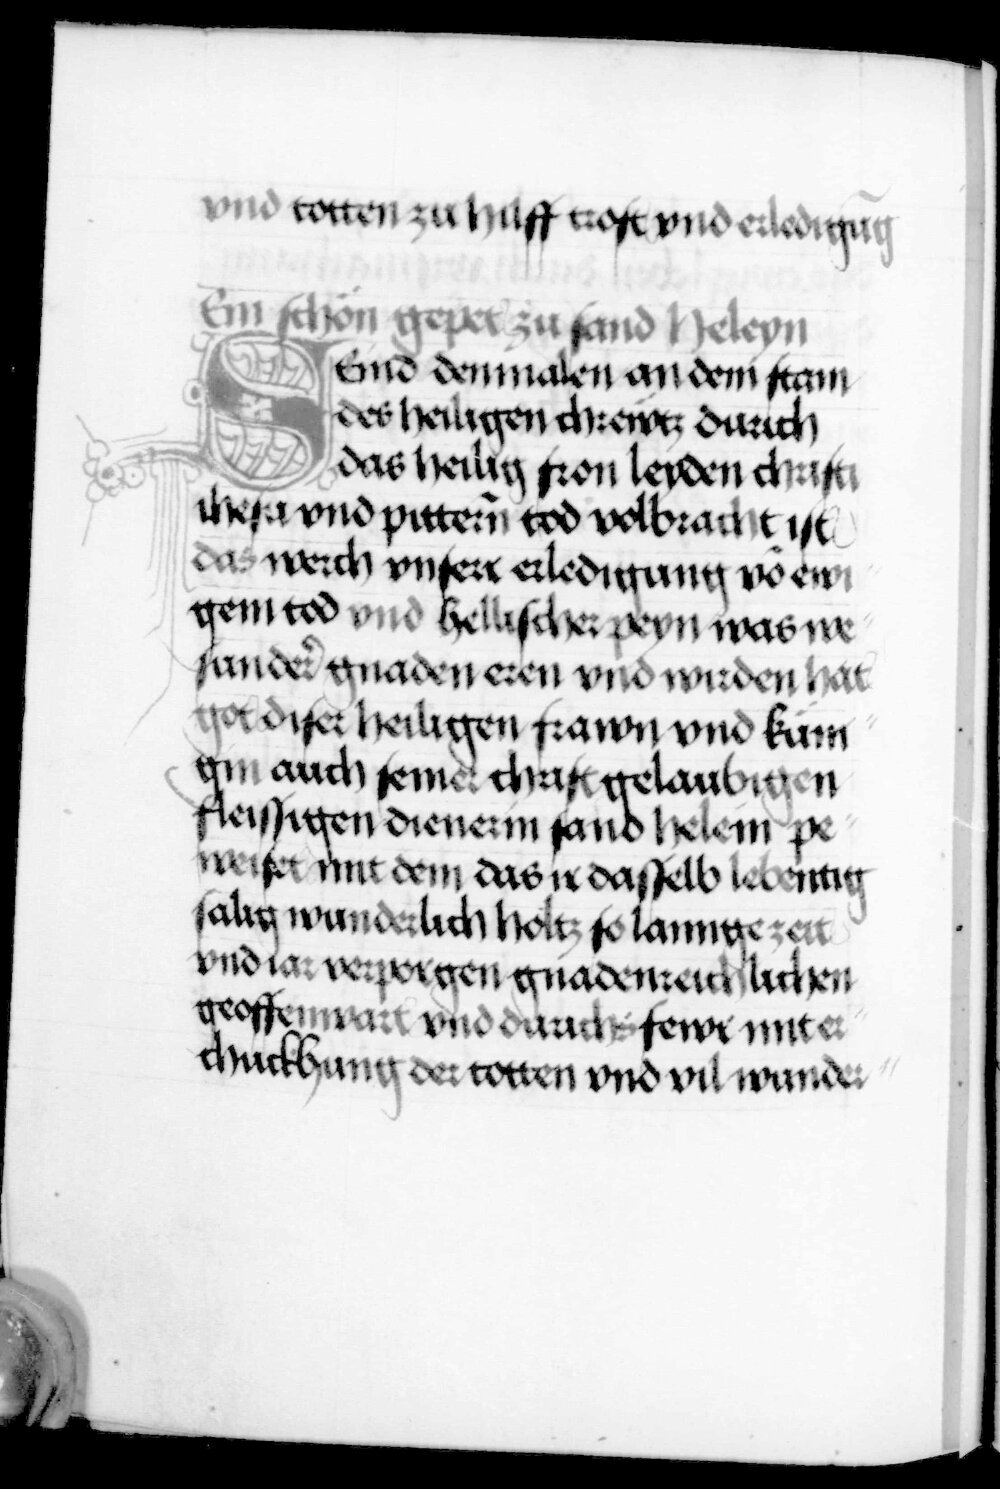 vnd totten zu hilff trost vnd erledigūg
Ein schön gepet zu sand Heleyn
SEind denmalen an dem stam
des heiligen chrewtz durich
das heilig fron leyden christi
ihesu vnd pitterm̄ tod volbracht ist
das werch vnserr erledigung vō ewi
gem tod vnd hellischer peyn was we
sander gnaden eren vnd wirden hat
got diser heiligen frawn vnd küni
gin auch seiner christgelaubigen
fleissigen dienerin sand helein pe
weiset mit dem das ir dasselb lebentig
salig wunderlich holtz so lannge zeit
vnd iar verporgen gnadenreichlichen
geoffennwart vnd durichs fewr mit er
chuckhung der totten vnd vil wunder